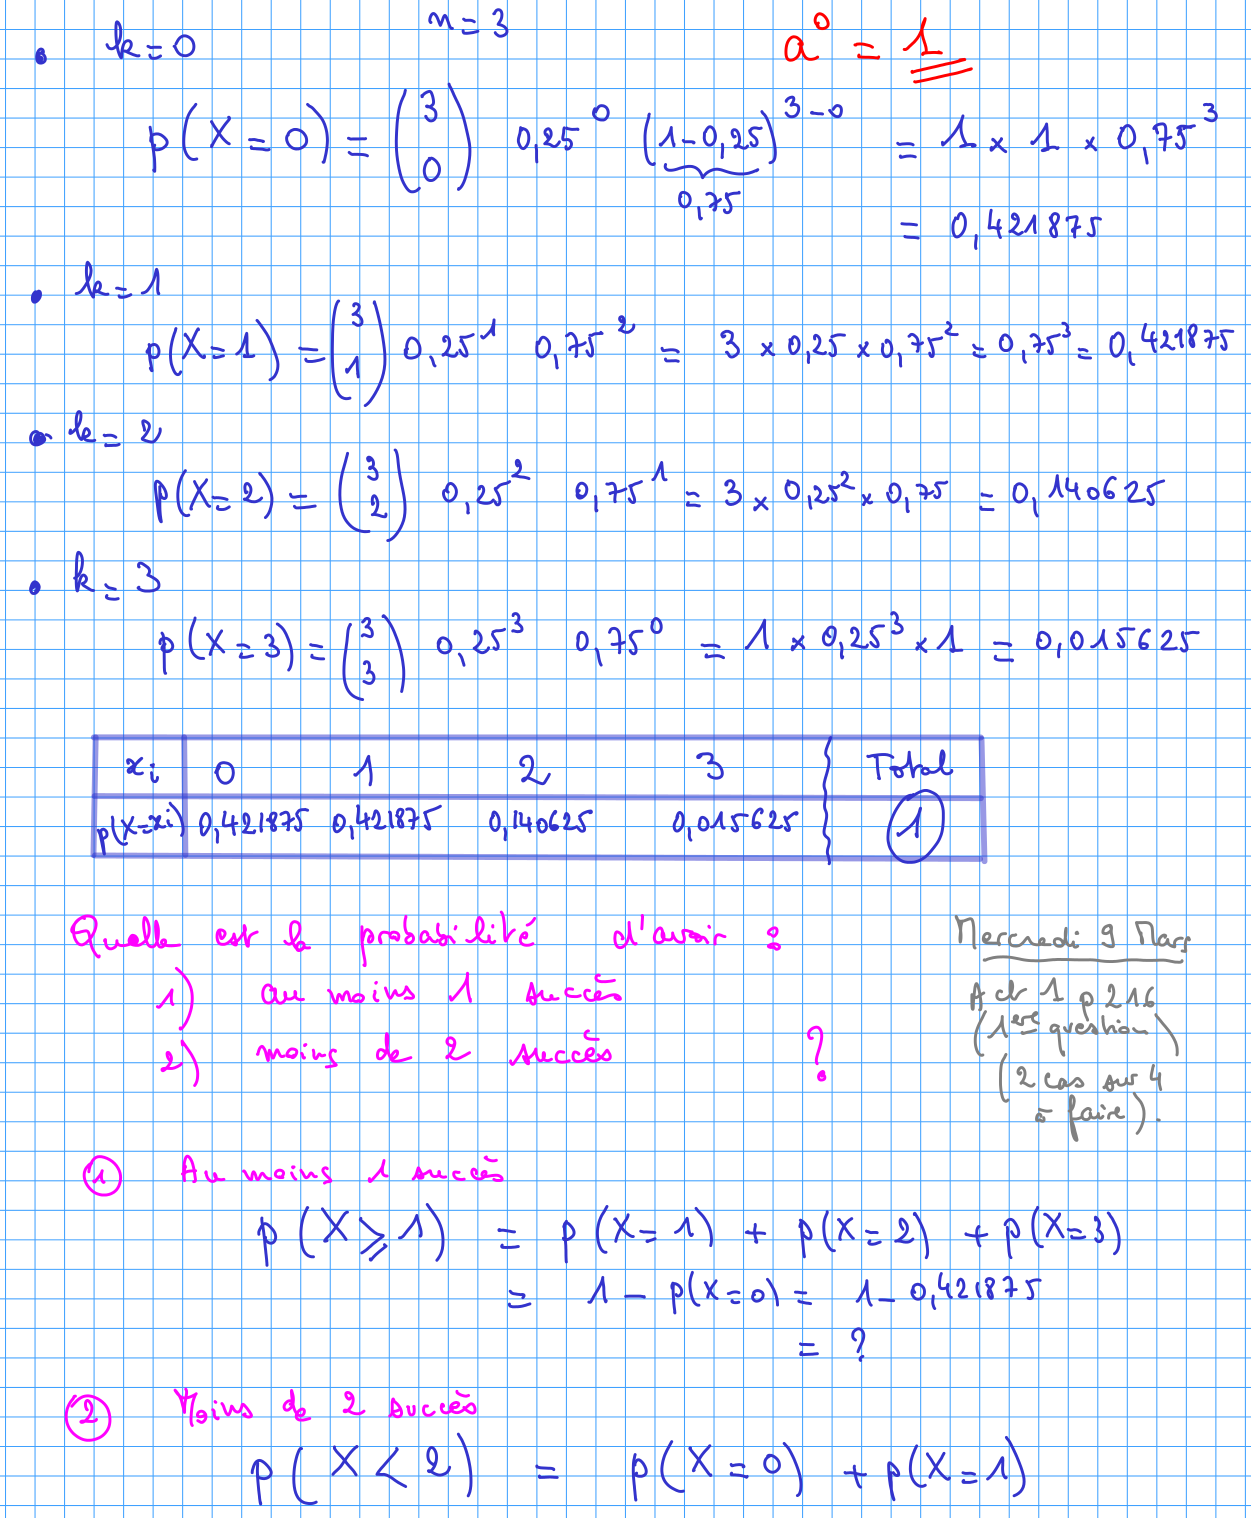 • k = 0   n = 3   a⁰ = 1
p(X = 0) = (3 0) 0,25⁰ (1 - 0,25)³⁻⁰ = 1 × 1 × 0,75³
0,75
= 0,421875
• k = 1
p(X = 1) = (3 1) 0,25¹ 0,75² = 3 × 0,25 × 0,75² = 0,75³ = 0,421875
• k = 2
p(X = 2) = (3 2) 0,25² 0,75¹ = 3 × 0,25² × 0,75 = 0,140625
• k = 3
p(X = 3) = (3 3) 0,25³ 0,75⁰ = 1 × 0,25³ × 1 = 0,015625
xi 0 1 2 3 Total
p(X=xi) 0,421875 0,421875 0,140625 0,015625 1
Quelle est la probabilité d'avoir :
1) au moins 1 succès
2) moins de 2 succès ?
Mercredi 9 Mars
Act 1 p 216
(1ère question)
(2 cas sur 4
à faire).
① Au moins 1 succès
p(X ⩾ 1) = p(X = 1) + p(X = 2) + p(X = 3)
= 1 - p(X = 0) = 1 - 0,421875
= ?
② Moins de 2 succès
p(X < 2) = p(X = 0) + p(X = 1)